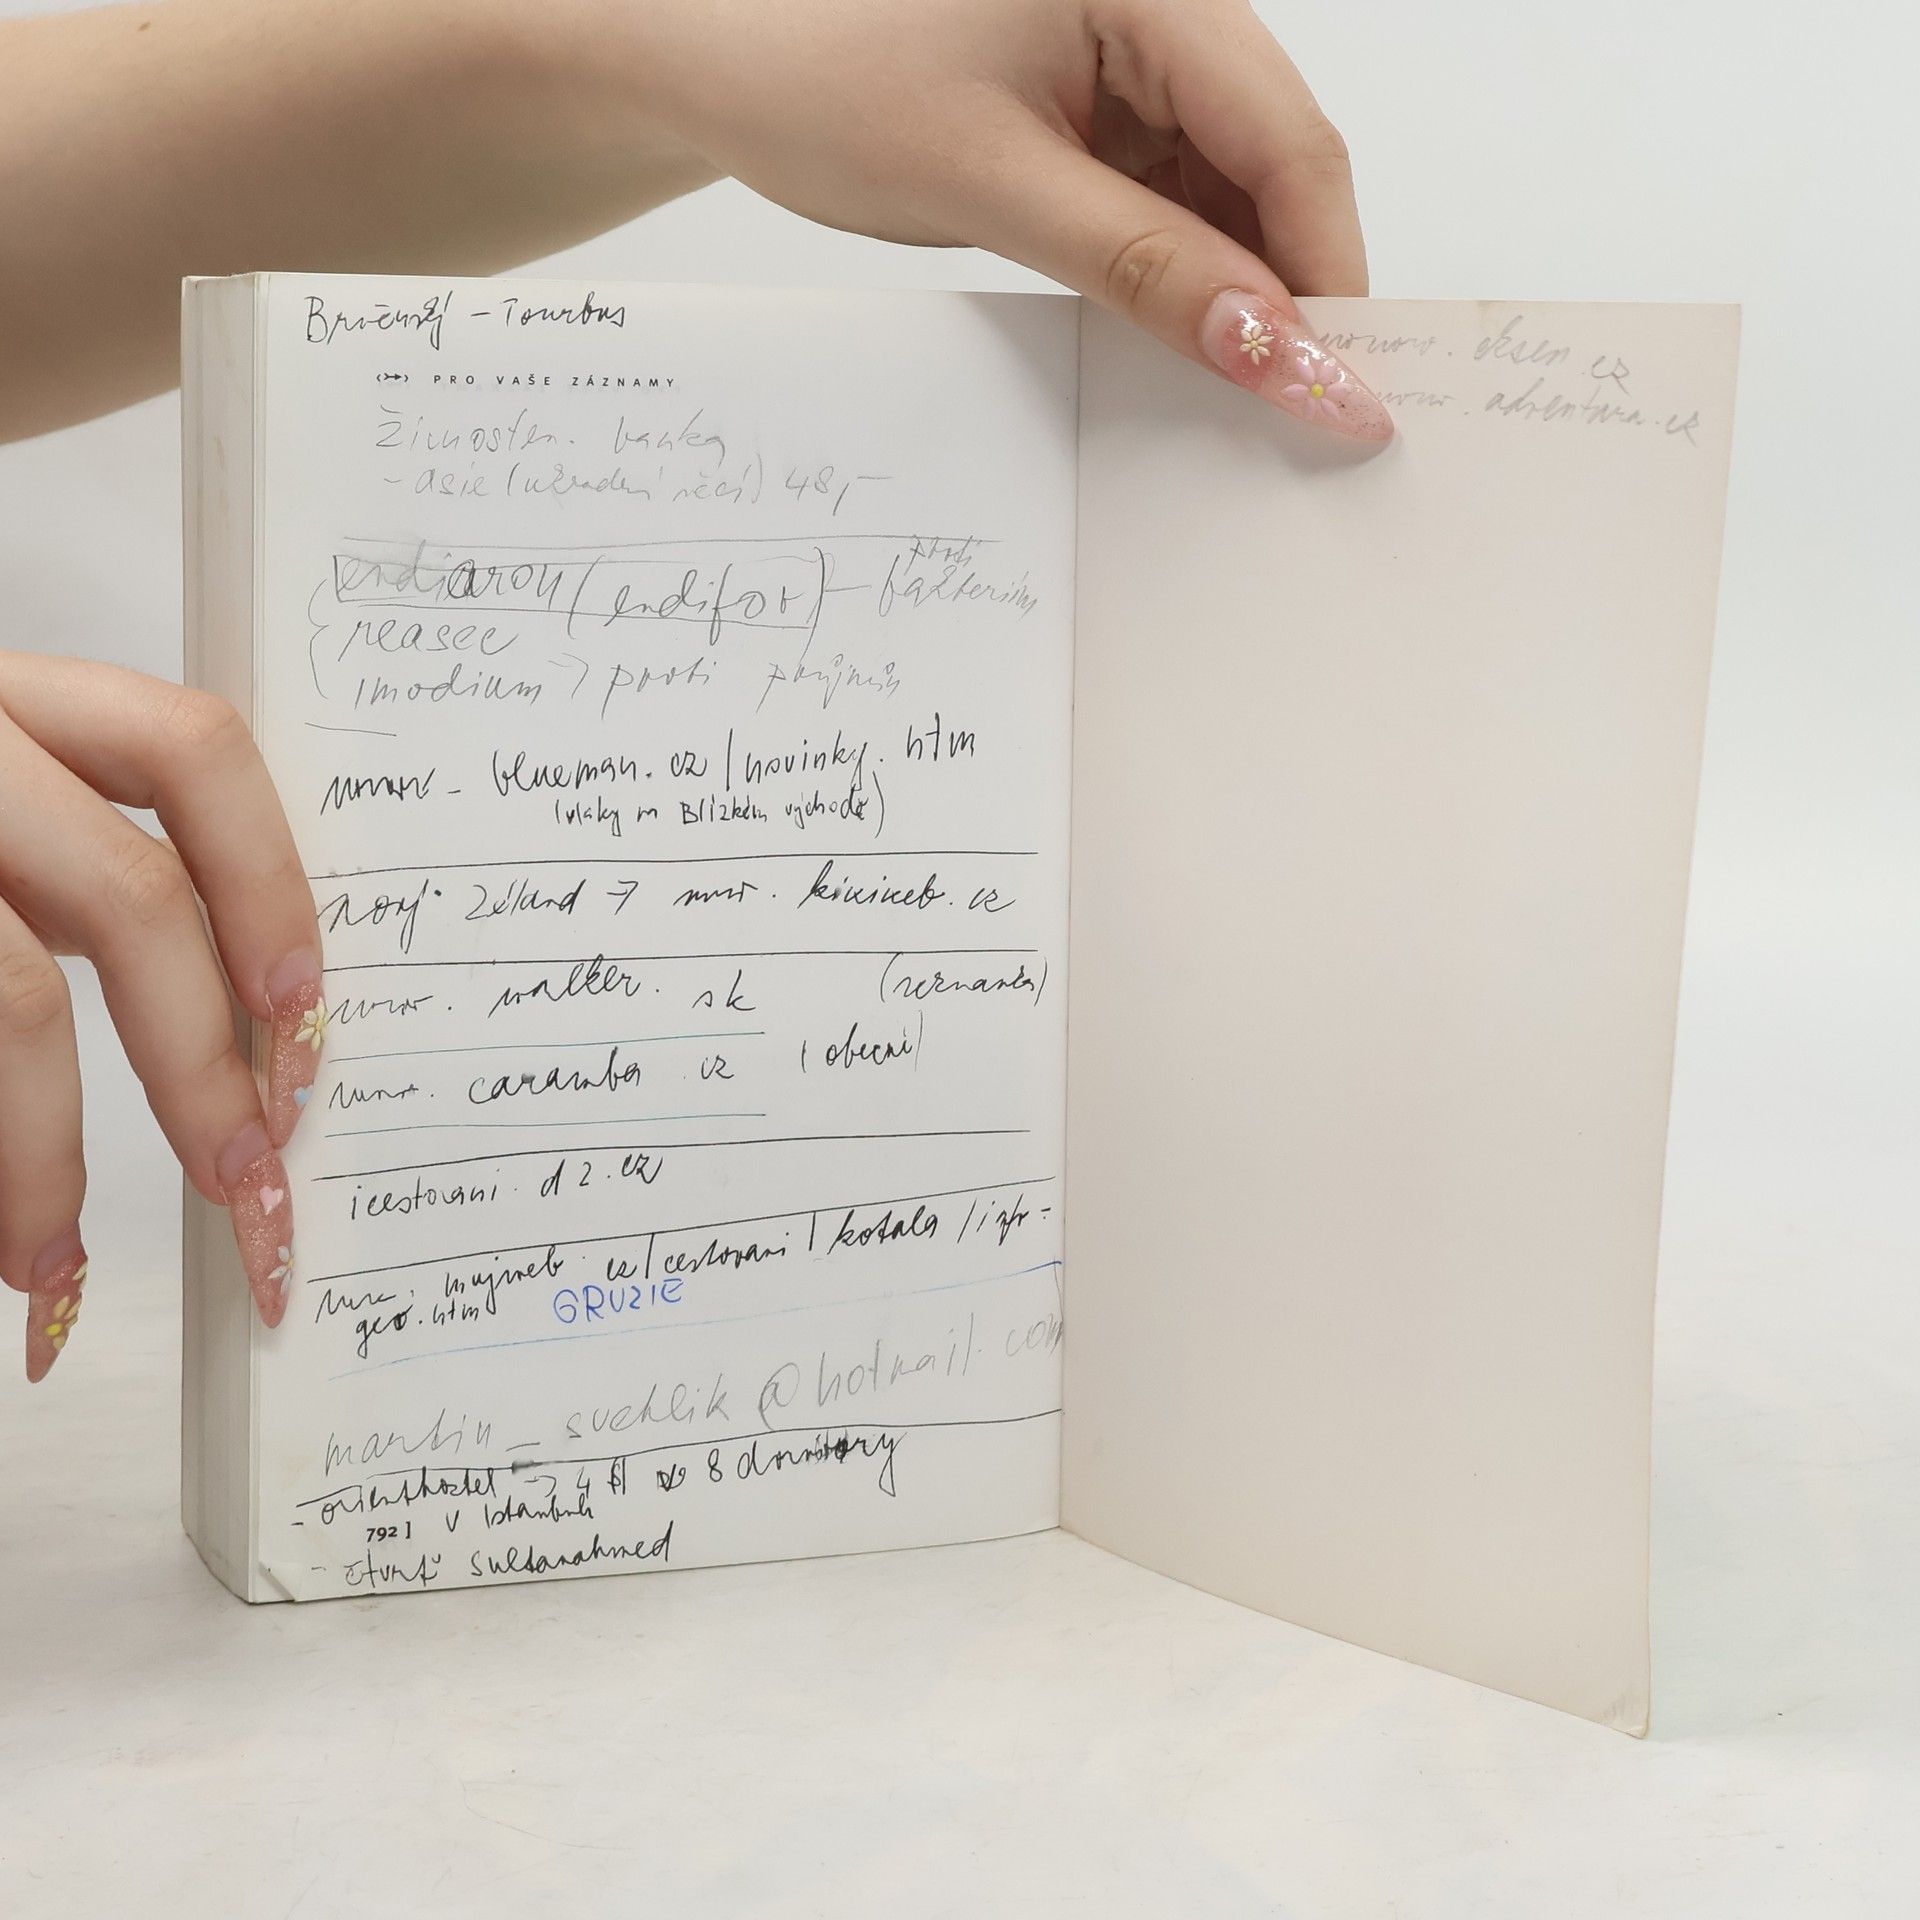 - Tourbus
PRO VAŠE ZÁZNAMY
Živnosten. banka
- asie (                ) 48,-
endiaron (endifor) - proti bakteriím
reasec
imodium → proti průjmům
www. blueman.cz/novinky.htm
(vlaky na Blízkém východě)
Nový Zéland → www. kiwiweb.cz
www. walker. sk (seznamka)
www. caramba cz (obecní)
icestovani. d2.cz
www. mujweb cz/cestovani/kotala/izfr-
geo.htm GRUZIE
martin_svehlik@hotmail.com
- orienthostel → 4 $ 8 dormitory
792] v Istanbulu
- čtvrť Sultanahmed
www. eksen cz
www. adventura.cz